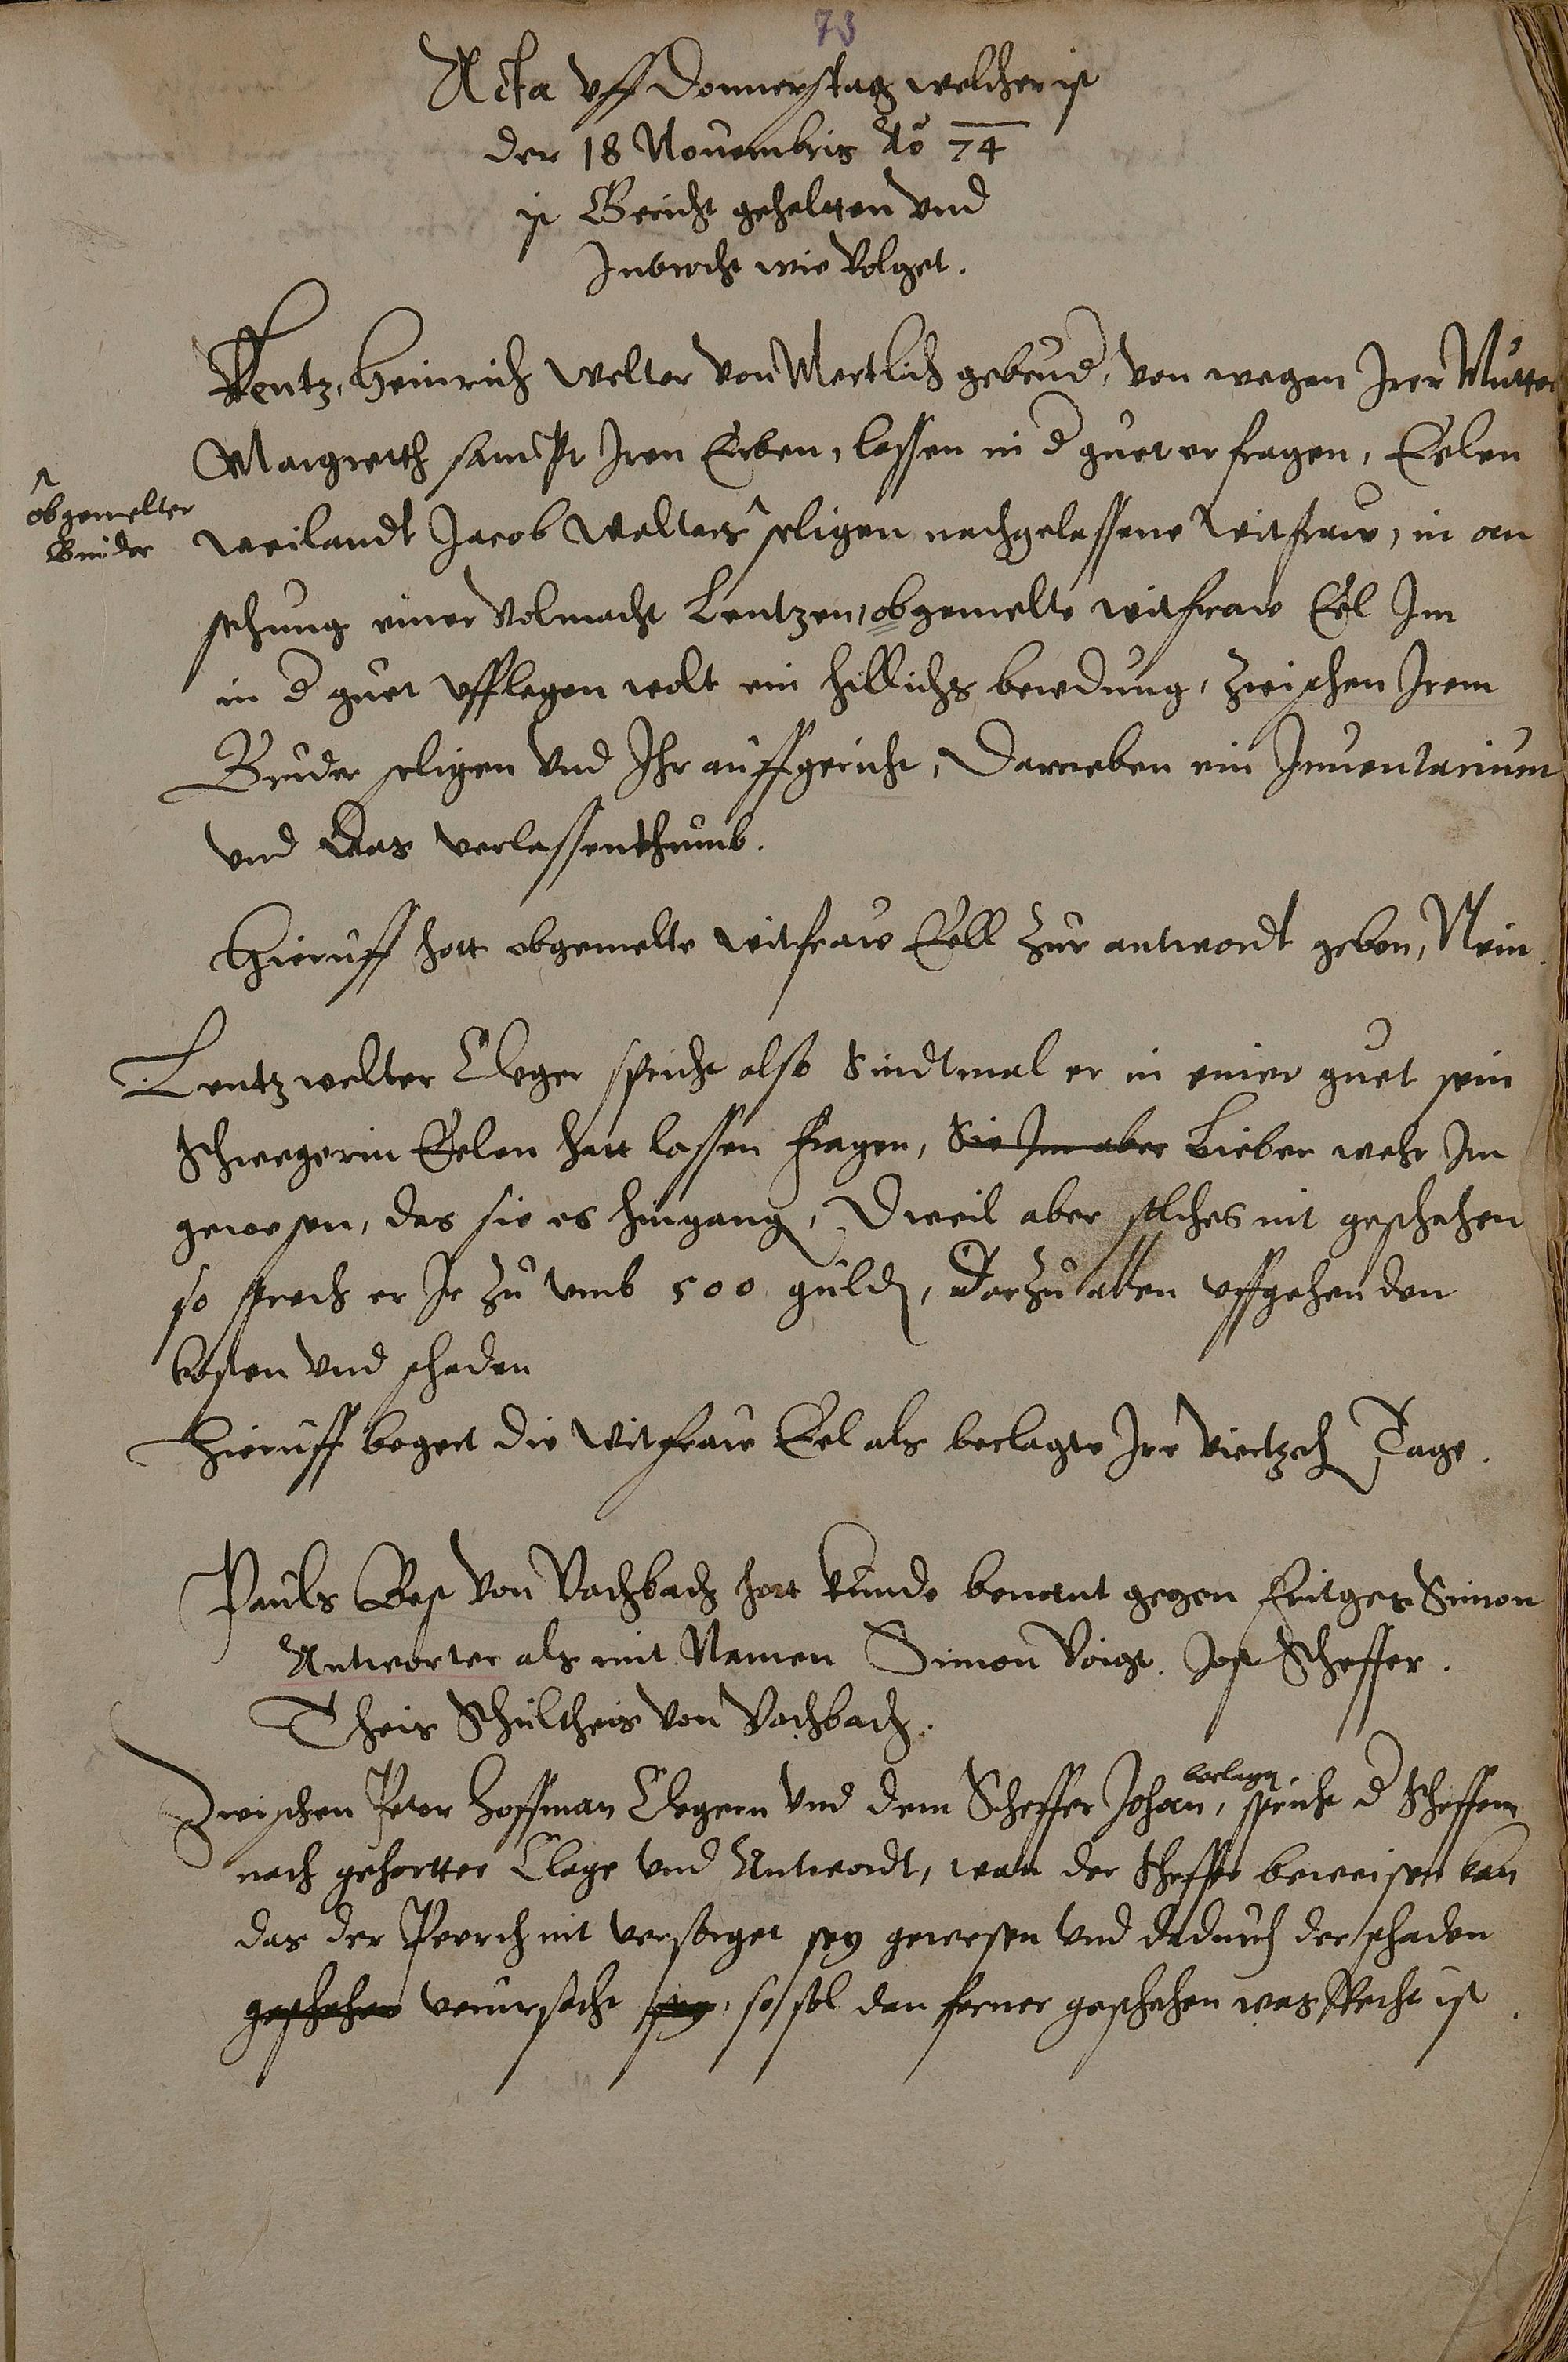 73
Acta vff Donnerstag welcher ist
der 18 Nouembris Ao 74
ist Gericht gehaltten vnd
Inbracht wie volget.
Lentz, Heinrich Welter von Mertlich gebrud, von wegen Irer Mutter
Margreth sampt Iren Erben, lassen in d guet er fragen, Eelen
obgemelter
Bruder
weilandt Jacob Welters seligen nachgelassene witfraw, in an
sehung einer Volmacht Lentzen, obgemelte witfraw Eel Im
in d guet vfflegen wolt ein hillichs beredung, zwischen Irem
Bruder seligen vnd Ihr auffgericht, Darneben ein Inuentarium
vnd das verlassenthumb.
Hieruff hatt obgemelte witfraw Eell zur antwordt geben, Nein.
Lentz welter Cleger spricht also Sindtmal er in einer guet sein
Schwegerin Eelen hatt lassen fragen, Sie Im aber Lieber wehr Im
gewesen, das sie es hingang, Dweil aber solches nit geschehen
so sprech er Ir zu vmb 500 guld, Darzu allen vffgehenden
kosten vnd schaden
Hieruff begert die witfraw Eel als beclagte Ire viertzeh Tage.
Pauls Best von Vachbach hatt kunde benant gegen Fritges Simon
Antworter als mit Namen Simon Voigt. Jost Scheffer.
Theis Schultheis von Vachbach.
beclagt
Zwischen Peter Hoffman Clegern vnd dem Scheffer Johan, spricht d Scheffen
nach gehortter Clage vnd Antwordt, wan der Scheffer beweisen kan
das der Pferch nit versorget sey gewesen vnd dadurch der schaden
geschehen verursacht sey, so sol dan ferner geschehen was Recht ist.